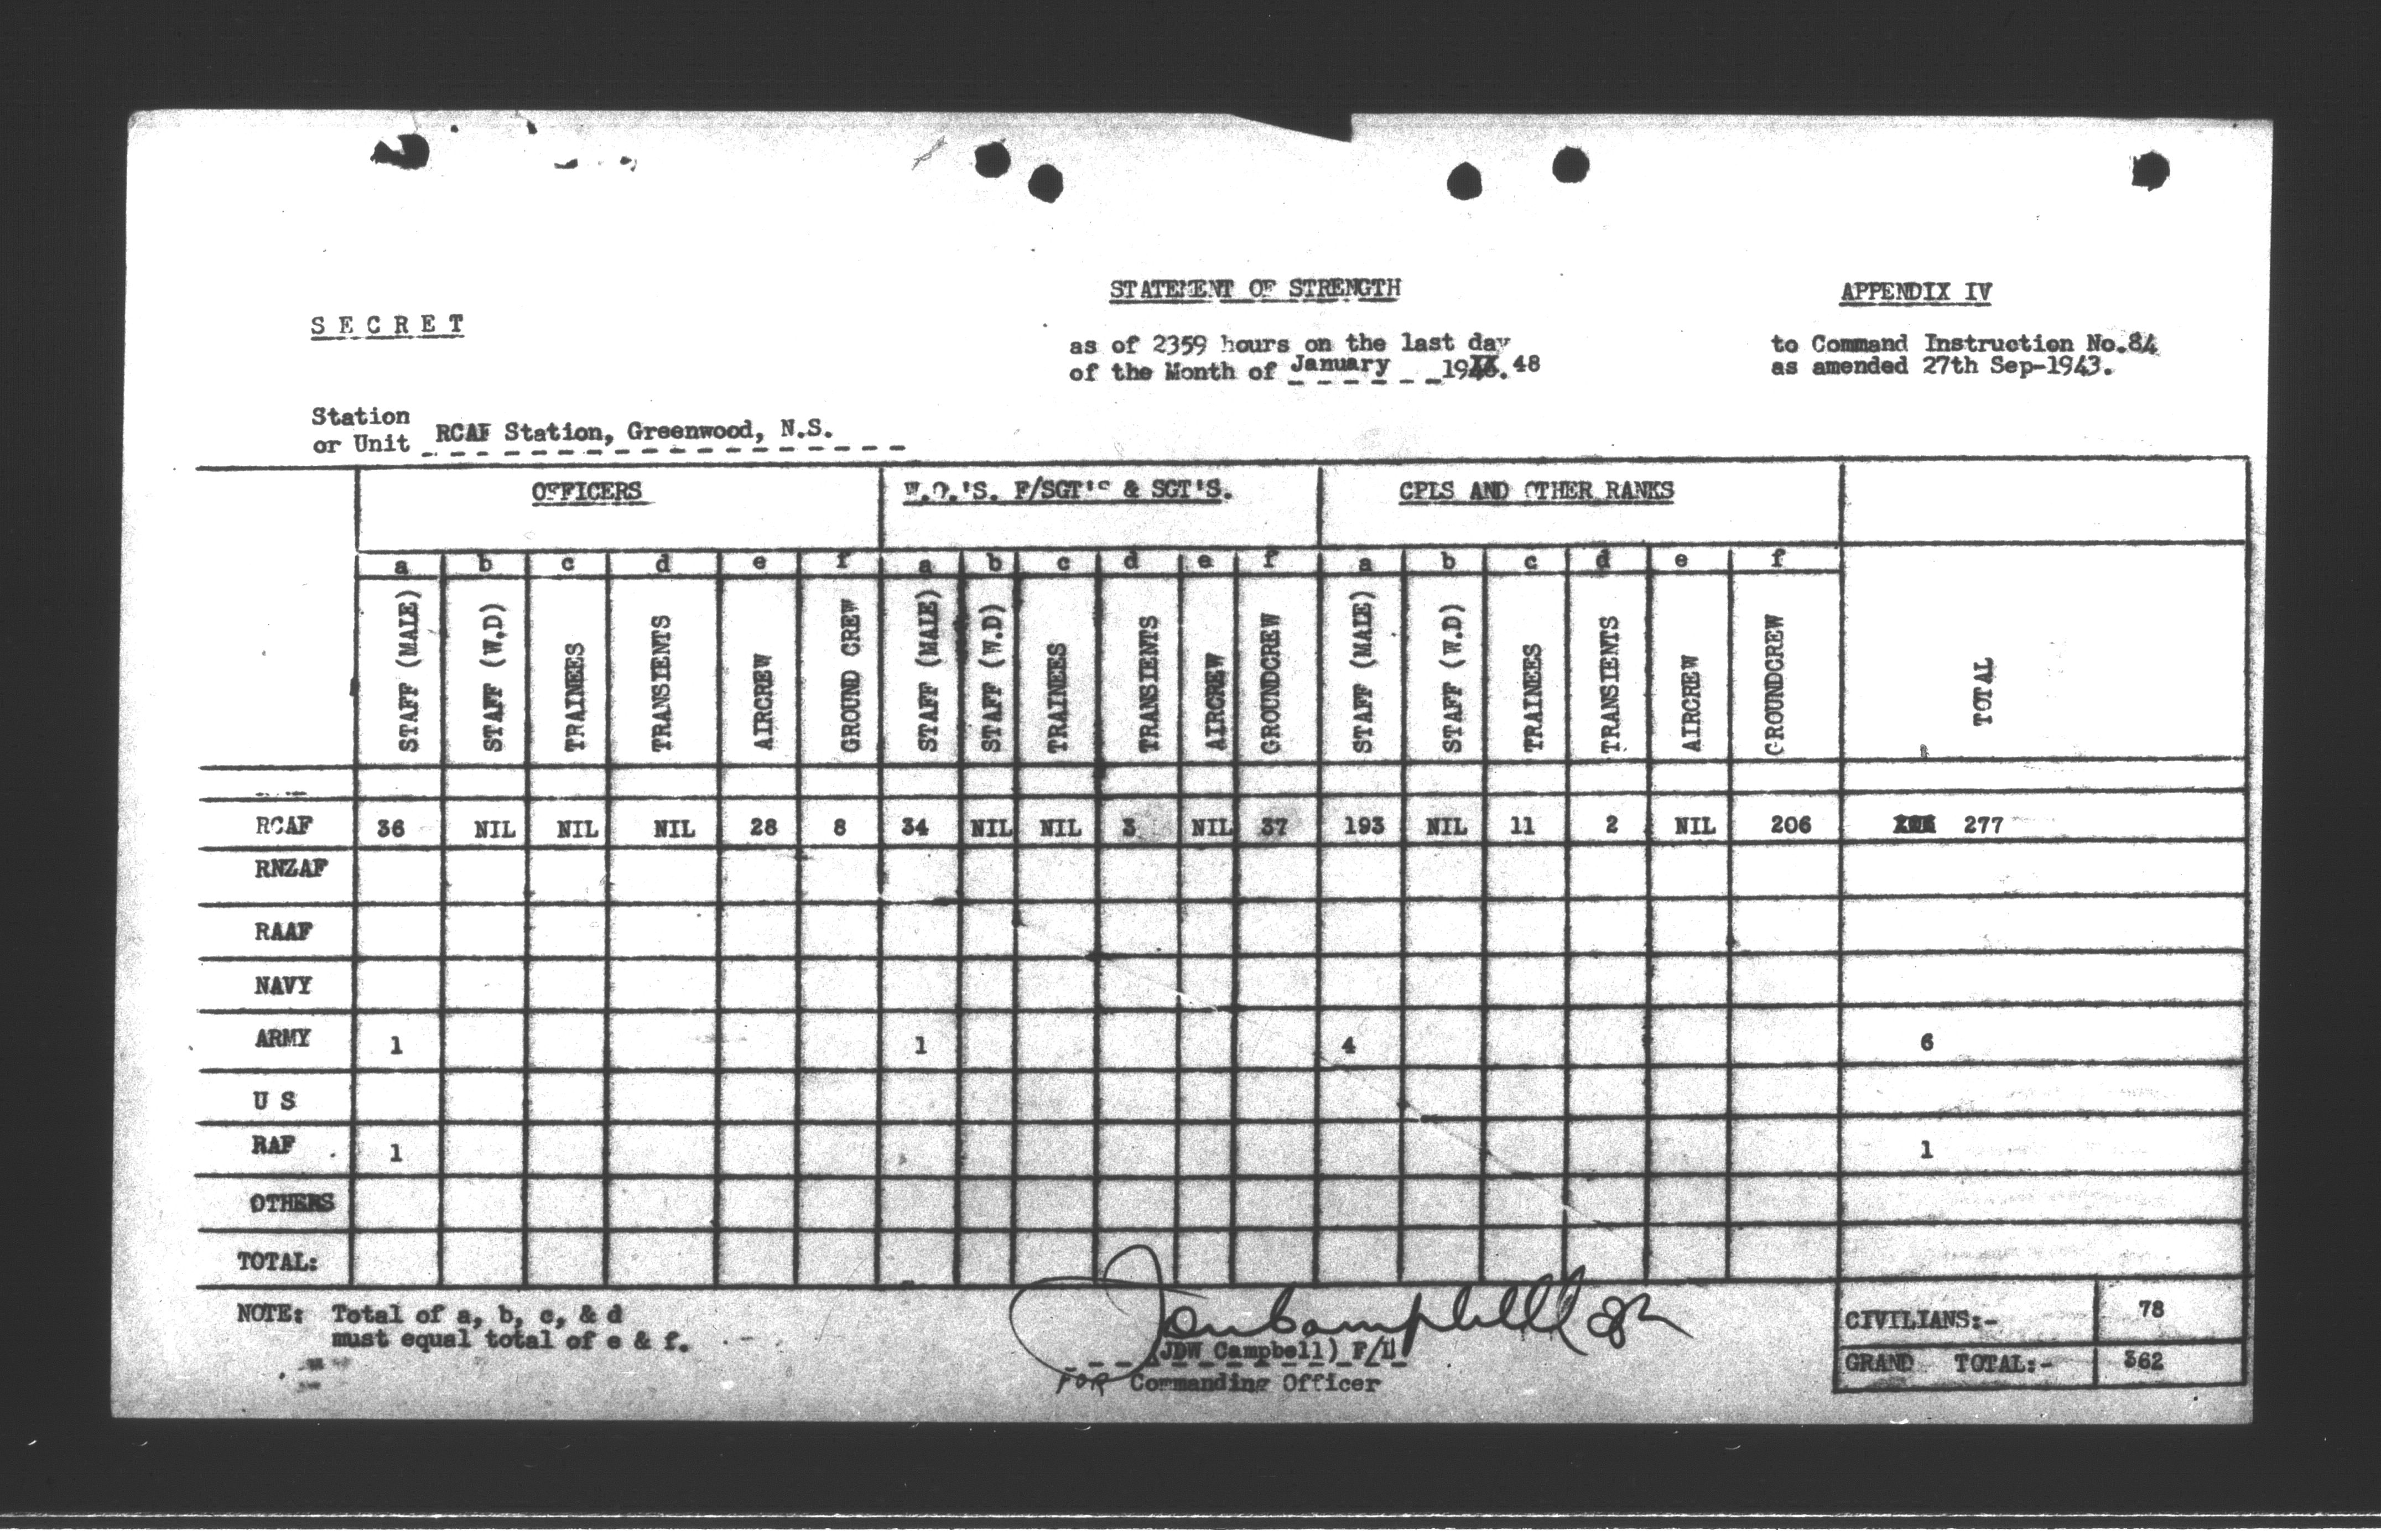 STATEMENT OF STRENGTH
APPENDIX IV
SECRET
as of 2359 hours on the last day
of the Month of January 48
to Command Instruction No.84
as amended 27th Sep-1943.
Station
or Unit RCAF Station, Greenwood, N.S.
OFFICERS W.O.'S. F/SGT'S & SGT'S. CPLS AND OTHER RANKS
a b c d e f a b c d e f a b c d e f
STAFF (MALE) STAFF (W.D) TRAINEES TRANSIENTS AIRCREW GROUND CREW STAFF (MALE) STAFF (W.D) TRAINEES TRANSIENTS AIRCREW GROUNDCREW STAFF (MALE) STAFF (W.D) TRAINEES TRANSIENTS AIRCREW GROUNDCREW TOTAL
RCAF 36 NIL NIL NIL 28 8 34 NIL NIL 3 NIL 37 193 NIL 11 2 NIL 206 277
RNZAF
RAAF
NAVY
ARMY 1 1 4 6
U S
RAF 1 1
OTHERS
TOTAL:
NOTE: Total of a, b, c, & d
must equal total of e & f.
(JDW Campbell) F/L
FOR Commanding Officer
CIVILIANS:- 78
GRAND TOTAL:- 362